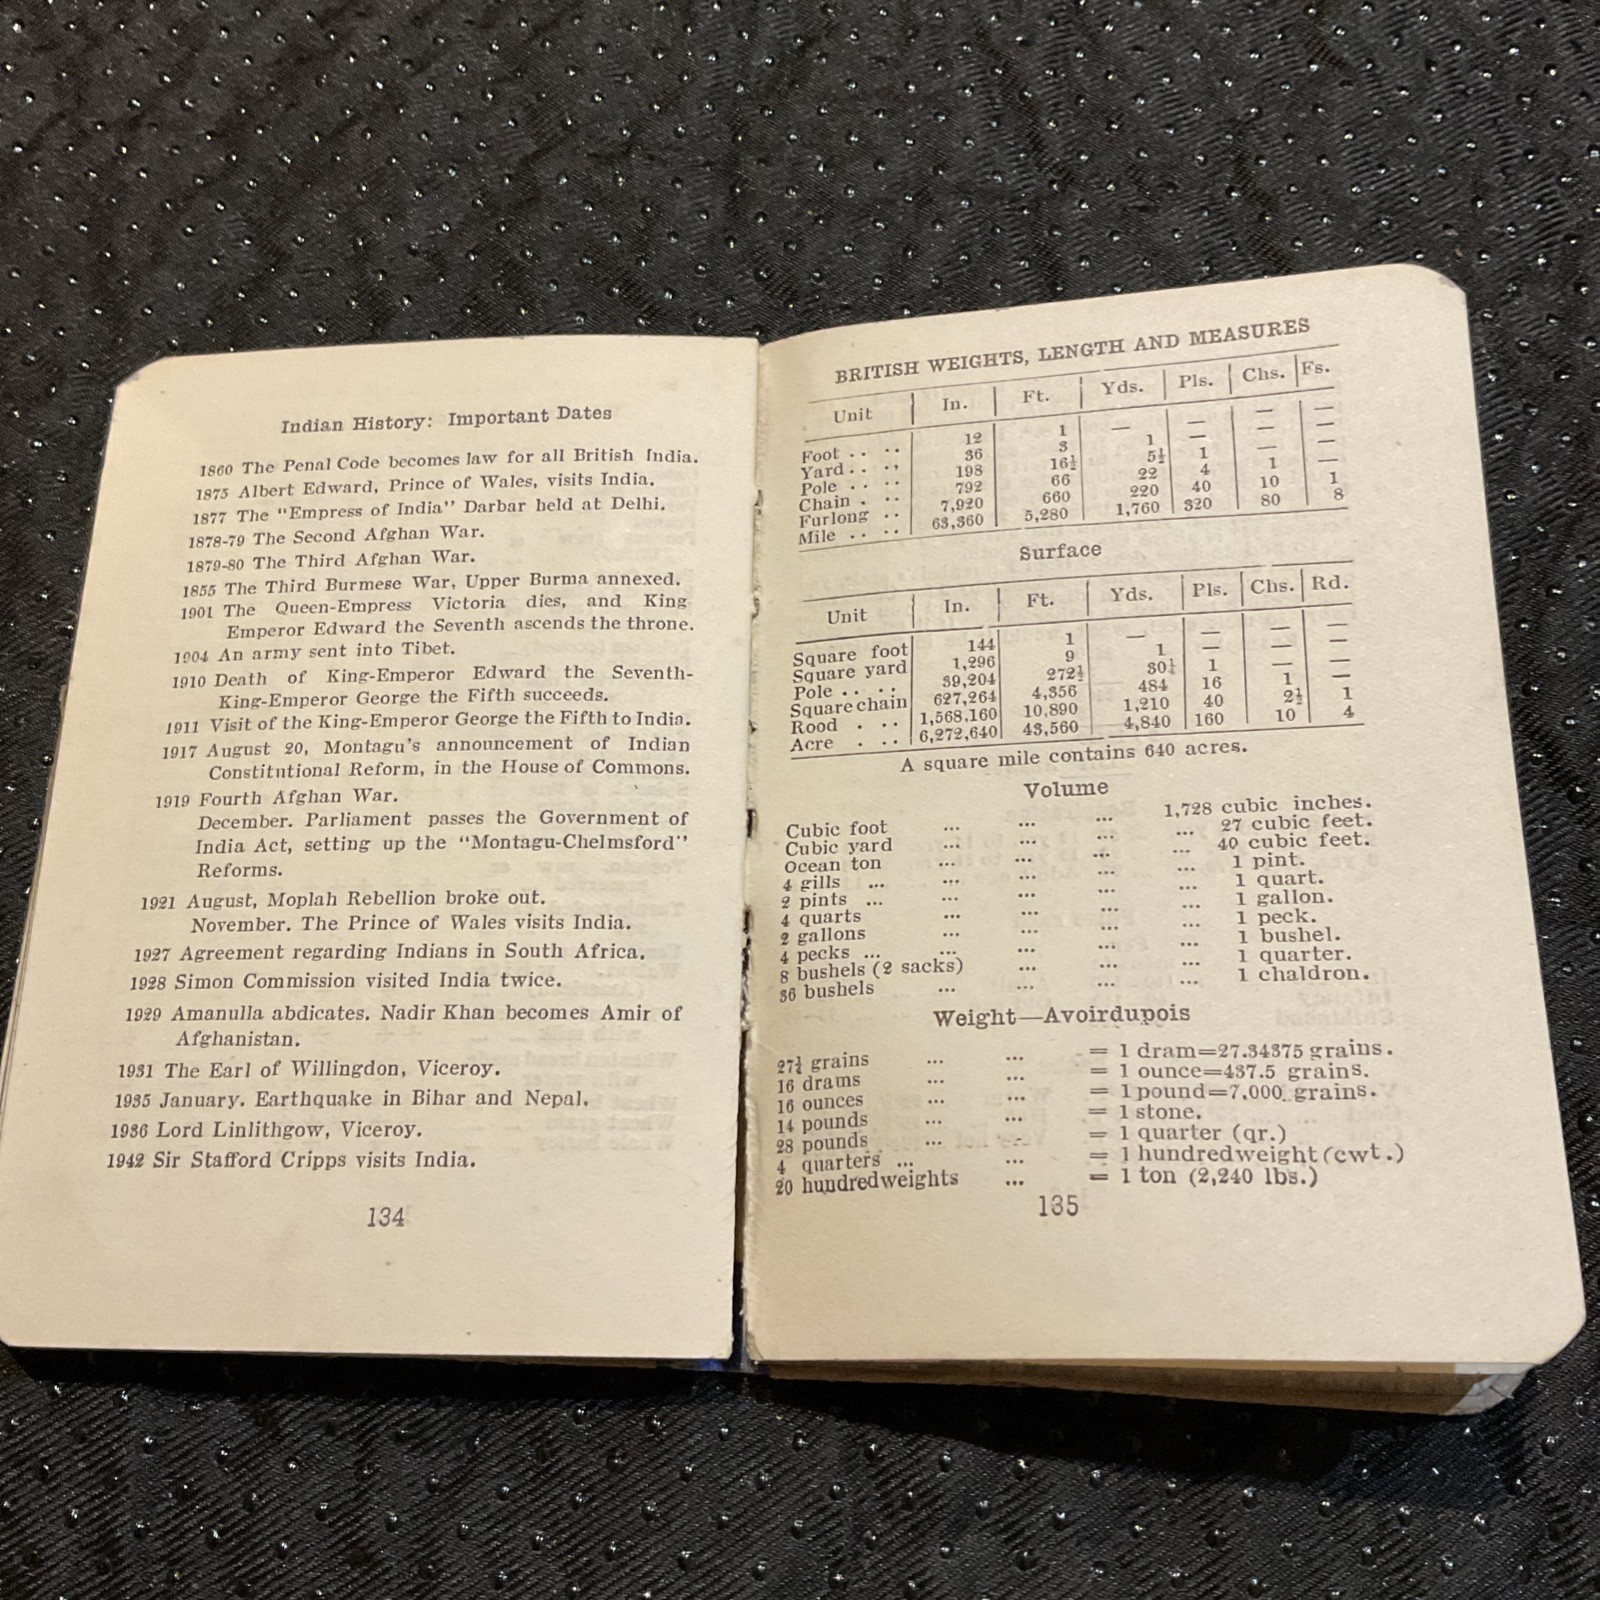 Indian History: Important Dates
1860 The Penal Code becomes law for all British India.
1875 Albert Edward, Prince of Wales, visits India.
1877 The "Empress of India" Darbar held at Delhi.
1878-79 The Second Afghan War.
1879-80 The Third Afghan War.
1855 The Third Burmese War, Upper Burma annexed.
1901 The Queen-Empress Victoria dies, and King
Emperor Edward the Seventh ascends the throne.
1904 An army sent into Tibet.
1910 Death of King-Emperor Edward the Seventh-
King-Emperor George the Fifth succeeds.
1911 Visit of the King-Emperor George the Fifth to India.
1917 August 20, Montagu's announcement of Indian
Constitntional Reform, in the House of Commons.
1919 Fourth Afghan War.
December. Parliament passes the Government of
India Act, setting up the "Montagu-Chelmsford"
Reforms.
1921 August, Moplah Rebellion broke out.
November. The Prince of Wales visits India.
1927 Agreement regarding Indians in South Africa.
1928 Simon Commission visited India twice.
1929 Amanulla abdicates. Nadir Khan becomes Amir of
Afghanistan.
1931 The Earl of Willingdon, Viceroy.
1935 January. Earthquake in Bihar and Nepal.
1936 Lord Linlithgow, Viceroy.
1942 Sir Stafford Cripps visits India.
134
BRITISH WEIGHTS, LENGTH AND MEASURES
Unit In. Ft. Yds. Pls. Chs. Fs.
Foot .. .. 12 1 — — — —
Yard .. .. 36 3 1 — — —
Pole .. .. 198 16½ 5½ 1 — —
Chain . .. 792 66 22 4 1 —
Furlong .. 7,920 660 220 40 10 1
Mile .. .. 63,360 5,280 1,760 320 80 8
Surface
Unit In. Ft. Yds. Pls. Chs. Rd.
Square foot 144 1 — — — —
Square yard 1,296 9 1 — — —
Pole .. .. 39,204 272¼ 30¼ 1 — —
Square chain 627,264 4,356 484 16 1 —
Rood . .. 1,568,160 10,890 1,210 40 2½ 1
Acre . .. 6,272,640 43,560 4,840 160 10 4
A square mile contains 640 acres.
Volume
Cubic foot ... ... ... 1,728 cubic inches.
Cubic yard ... ... ... ... 27 cubic feet.
Ocean ton ... ... ... ... 40 cubic feet.
4 gills ... ... ... ... ... 1 pint.
2 pints ... ... ... ... ... 1 quart.
4 quarts ... ... ... ... 1 gallon.
2 gallons ... ... ... ... 1 peck.
4 pecks ... ... ... ... ... 1 bushel.
8 bushels (2 sacks) ... ... ... 1 quarter.
36 bushels ... ... ... ... 1 chaldron.
Weight—Avoirdupois
27¼ grains ... ... = 1 dram=27.34375 grains.
16 drams ... ... = 1 ounce=437.5 grains.
16 ounces ... ... = 1 pound=7,000 grains.
14 pounds ... ... = 1 stone.
28 pounds ... ... = 1 quarter (qr.)
4 quarters ... ... = 1 hundredweight (cwt.)
20 hundredweights ... = 1 ton (2,240 lbs.)
135